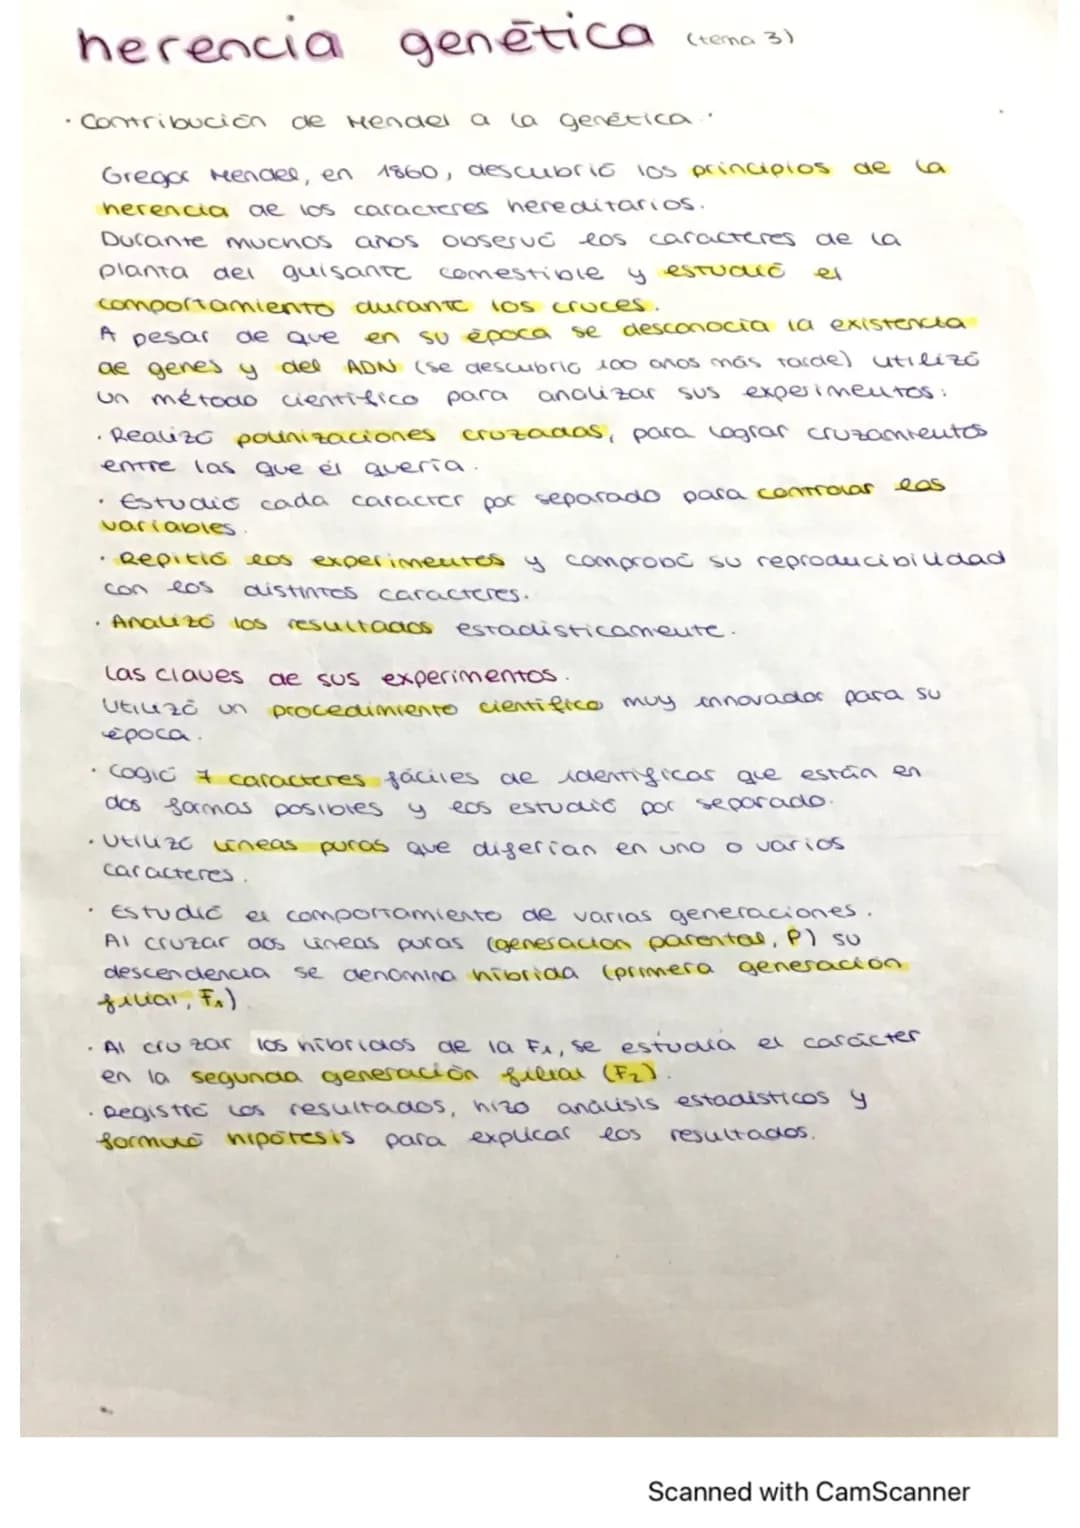 herencia genética (tema 3)
· Contribución de Mendel a la genética ·
Gregor Mendel, en 1860, descubrió los principios de la
herencia de los caracteres hereditarios.
Durante muchos años observó los caracteres de la
planta del guisante comestible y estudió el
comportamiento durante los cruces.
A pesar de que en su época se desconocía la existencia
de genes y del ADN (se descubrió 100 años más tarde) utilizó
un método científico para analizar sus experimentos:
· Realizó polinizaciones cruzadas, para lograr cruzamientos
entre las que él quería.
· Estudió cada caracter por separado para controlar las
variables.
· Repitió los experimentos y comprobó su reproducibilidad
con los distintos caracteres.
· Analizó los resultados estadísticamente.
Las claves de sus experimentos.
Utilizó un procedimiento científico muy innovador para su
época.
· Cogió 7 caracteres fáciles de identificar que están en
dos formas posibles y los estudió por separado.
· Utilizó líneas puras que diferían en uno o varios
caracteres.
· Estudió el comportamiento de varias generaciones.
Al cruzar dos líneas puras (generación parental, P) su
descendencia se denomina híbrida (primera generación
filiar, F₁)
· Al cruzar los híbridos de la F₁, se estudia el carácter
en la segunda generación filial (F₂).
· Registró los resultados, hizo análisis estadísticos y
formuló hipótesis para explicar los resultados.
Scanned with CamScanner